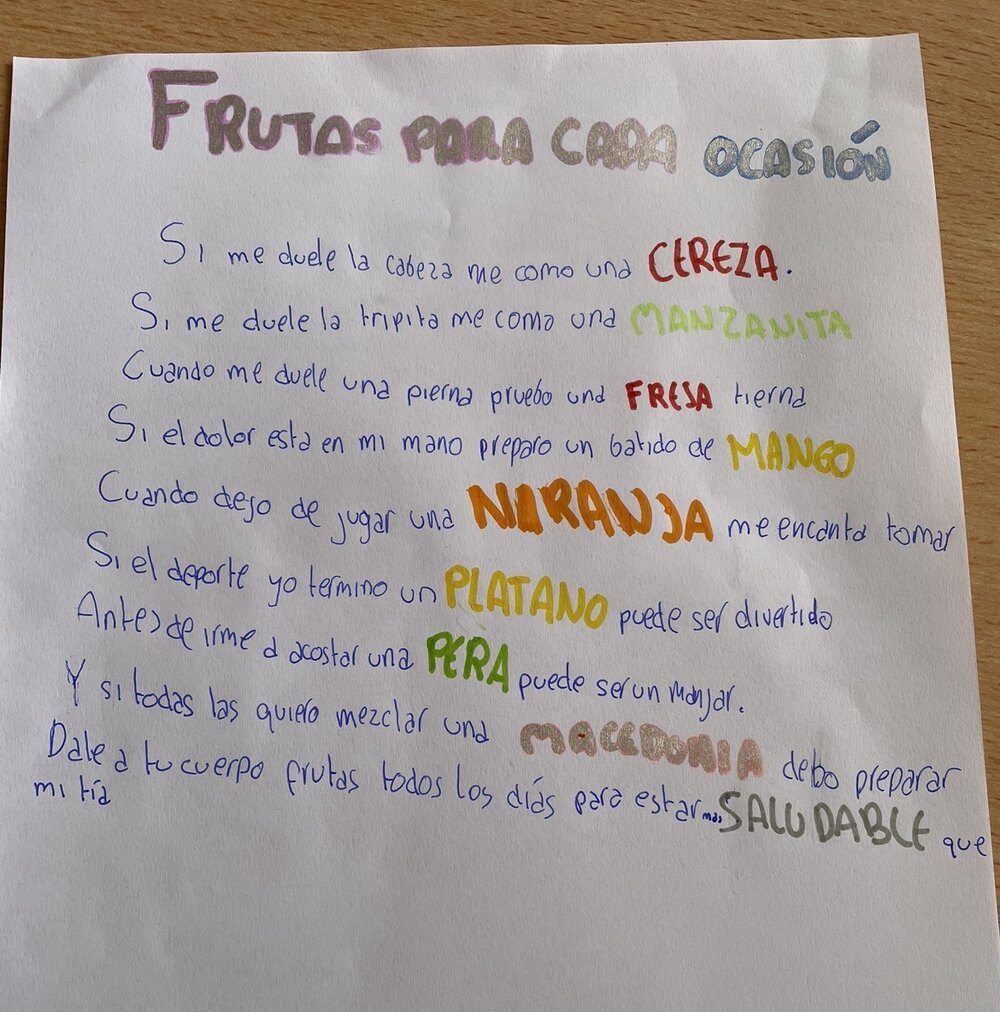 FRUTAS PARA CADA OCASIÓN
Si me duele la cabeza me como una CEREZA.
Si me duele la tripita me como una MANZANITA
Cuando me duele una pierna pruebo una FRESA tierna
Si el dolor esta en mi mano preparo un batido de MANGO
Cuando dejo de jugar una NARANJA me encanta tomar
Si el deporte yo termino un PLATANO puede ser divertido
Antes de irme a acostar una PERA puede ser un manjar.
Y si todas las quiero mezclar una MACEDONIA debo preparar
Dale a tu cuerpo frutas todos los diás para estar mas SALUDABLE que
mi tía